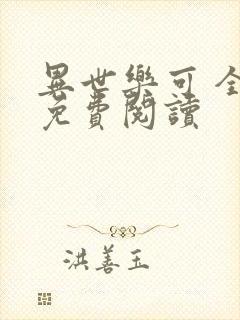 異世樂可 全
免費閱讀
洪善玉